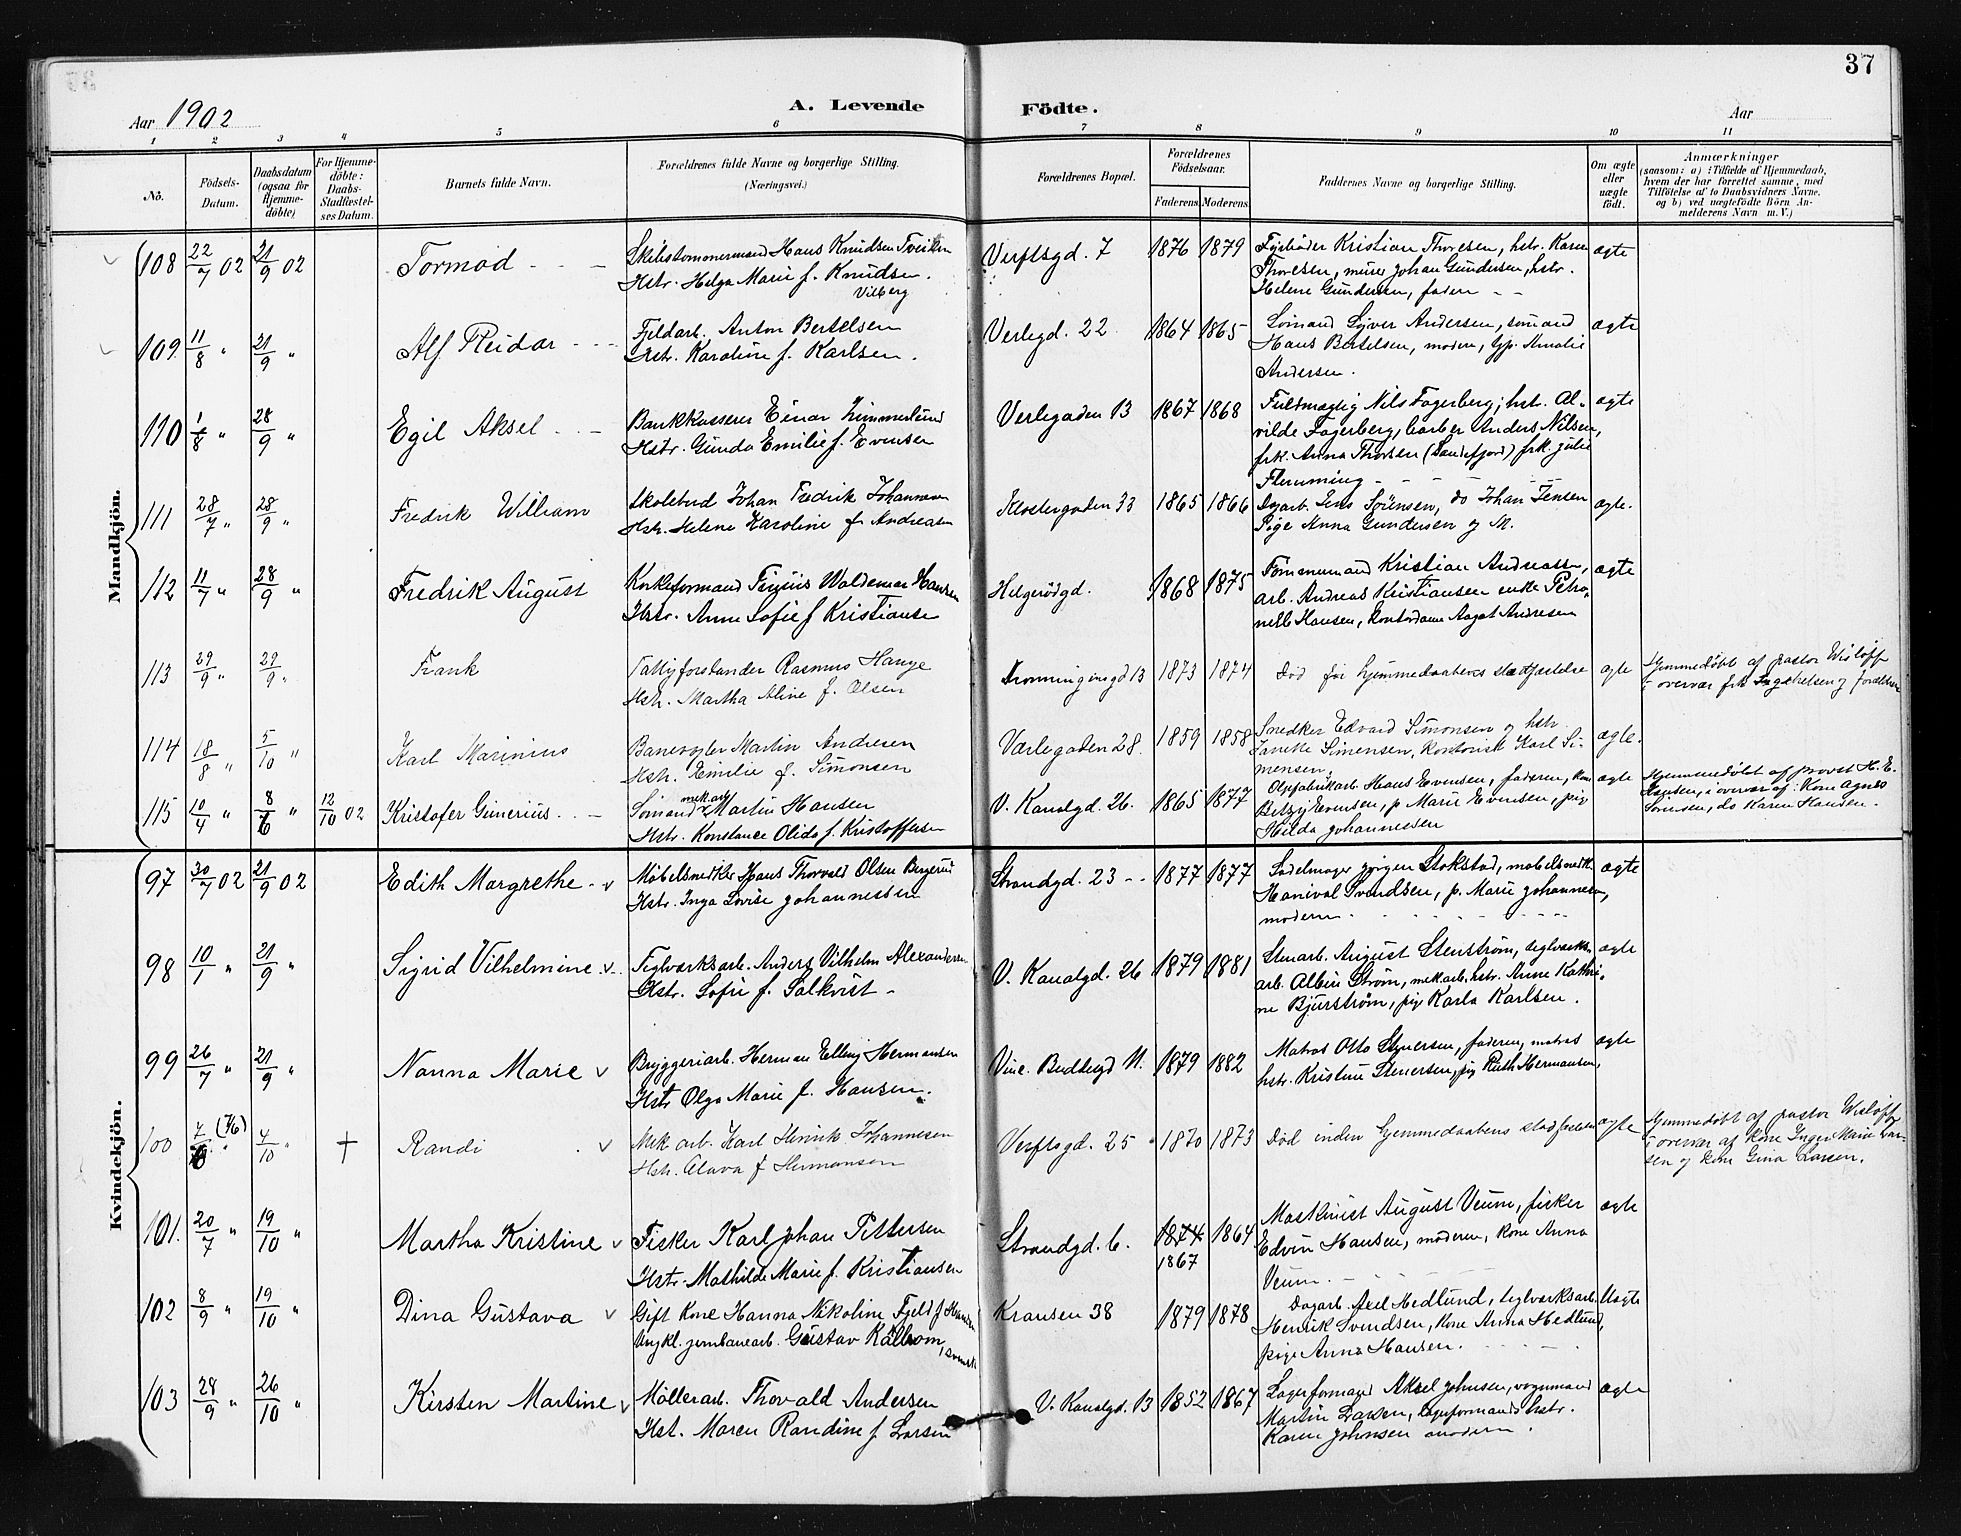 37
Aar 1902
A. Levende Födte.
Aar
1 2 3 4 5 6 7 8 9 10 11
Nô.
Födsels-Datum.
Daabsdatum (ogsaa for Hjemme-döbte)
For Hjemme-döbte: Daabs-Stadfæstel-ses Datum.
Barnets fulde Navn.
Forældrenes fulde Navne og borgerlige Stilling.
(Næringsvei.)
Forældrenes Bopæl.
Forældrenes Födselsaar.
Faderens Moderens
Faddernes Navne og borgerlige Stilling.
Om ægte eller uægte födt.
Anmærkninger
(saasom: a) i Tilfælde af Hjemmedaab,
hvem der har forrettet samme, med
Tilföielse af to Daabsvidners Navne,
og b) ved uægtefödte Börn An-
melderens Navn m. V.)
Mandkjön.
108 22/7 02 21/9 02 Tormod Verftsgd. 7 1876 1879 ægte
Skibstømmermand Hans Knudsen
Hstr. Helga Marie f. Knudsen
Vilberg
Fyrbøder Kristian Thoresen, hstr. Karen
Thoresen, murer Johan Gundersen, hstr.
Helene Gundersen, faderen
109 11/8 " 21/9 " Alf Reidar Verlegd. 22 1864 1865 ægte
Fjeldarb. Anton Bertelsen
Hstr. Karoline f. Karlsen.
Sømand Andersen, sømand
Hans Bertelsen, moderen, Amalie
Andersen.
110 1/8 " 28/9 " Egil Aksel Verlegaden 13 1867 1868 ægte
Bankkasserer Einar
Hstr. Gunda Emilie f. Evensen
Fuldmægtig Nils Fagerberg, hstr. Al-
vilde Fagerberg, barber Anders Nilsen,
frk. Anna Thorsen (Sandefjord) frk. Julie
Flemming
111 28/7 " 28/9 " Fredrik William Klostergaden 33 1865 1866 ægte.
Skolebud Johan Fredrik Johannesen
Hstr. Helene Karoline f. Andreasen
Dagarb. Jens Sørensen, do Johan Jensen
Pige Anna Gundersen og M.
112 11/7 " 28/9 " Fredrik August Helgerødgd. 1868 1875 ægte
Waldemar Hansen
Hstr. Anne Sofie f Kristiansen
Tømmermand Kristian Andreassen,
arb. Andreas Kristiansen enke Petro-
nelle Hansen, Aagot Andresen
113 29/9 " 29/9 " Frank Dronningensgd 13 1873 1874 ægte
Rasmus Hauge
Hstr. Martha Aline f. Olsen
Død før hjemmedaabens stadfæstelse
Hjemmedøbt af pastor Wisløff
i overvær frk og forældrene
114 18/8 " 5/10 " Karl Marinius Værlegaden 28. 1859 1858 ægte.
Banevogter Martin Andresen
Hstr. Emilie f. Simonsen
Snedker Edvard Simonsen og hstr.
Simensen, kontorist Karl Si-
mensen
115 10/4 " 8/6 " 12/10 02 Kristofer Gunerius V. Kanalgd. 26. 1865 1877 ægte
mek. arb
Sømand Martin Hansen
Hstr. Konstance Olida f. Kristoffersen
Hans Evensen, faderen, kone
Betzy Evensen, p Marie Evensen, pige
Hilda Johannessen
Hjemmedøbt af provst H. E.
Hansen, i overvær af: Kone Agnes
Sørensen, do Karen Hansen.
Kvindekjön.
97 30/7 02 21/9 02 Edith Margrethe v Strandgd. 23 1877 1877 ægte
Møbelsnedker Hans Thorvald Olsen
Hstr. Inga Lovise Johannessen
Sadelmager Jørgen Stokstad, møbelsnedk.
Hanival Svendsen, p. Marie Johannesen,
moderen
98 10/1 " 21/9 " Sigrid Vilhelmine v. V. Kanalgd. 26 1879 1881 ægte
Teglværksarb. Anders Vilhelm Alexandersen
Hstr. Sofie f. Salkvist
Stenarb. August Stenstrøm, teglværks-
arb. Albin Strøm, mek.arb. hstr. Anne Kathri-
ne Bjurstrøm, pige Karla Karlsen.
99 26/7 " 21/9 " Nanna Marie v Vinc. Budtsgd 11. 1879 1882 ægte
Bryggeriarb. Herman Elling Hermansen
Hstr Olga Marie f. Hansen.
Matros Otto Stenersen, faderen, matros
hstr. Kristine Stenersen, pige Ruth Hermansen,
100 7/6 (7/6) " 4/10 " † Randi v Verftsgd. 25 1870 1873 ægte
Mek arb. Karl Henrik Johannesen
Hstr. Olava f Hermansen
Død inden hjemmedaabens stadfæstelse
Hjemmedøbt af pastor Wisløff
i overvær af Kone Inger Marie Lar-
sen og kone Gina Larsen.
101. 20/7 " 19/10 " Martha Kristine v Strandgd. 6. 1874 1864 ægte
1867
Fisker Karl Johan Pettersen
Hstr. Mathilde Marie f. Kristiansen
Maskinist August Veum, fisker
Edvin Hansen, moderen, kone Anna
Veum.
102 8/9 " 19/10 " Dina Gustava v Kransen 38 1879 1878 Uægte
Gift kone Hanna Nikoline Fjeld f Hansen
Ungkl. jernbanearb. Gustav Kallrom, svensk
Dagarb. Axel Hedlund, teglværksarb.
Henrik Svendsen, kone Anna Hedlund,
pige Anna Hansen.
103 28/9 " 26/10 " Kirsten Martine v V. Kanalgd. 13 1852 1867 ægte
Møllerarb. Thorvald Andersen
Hst. Maren Randine f Larsen
Lagerformand Aksel Johnsen, vognmand
Martin Larsen, lagerformands hstr.
Karen Johnsen moderen.